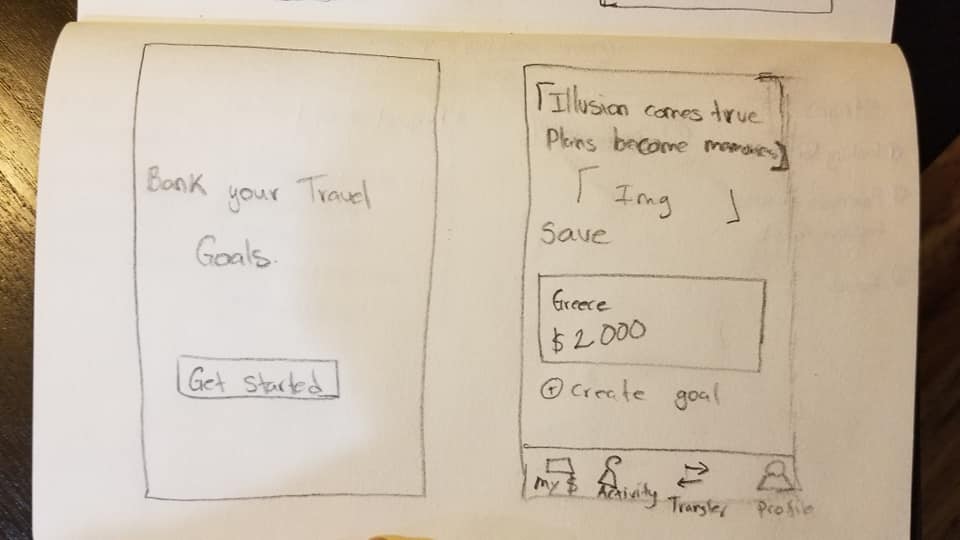 Bank your Travel
Goals.
Get started
「Illusion comes true
Plans become memories」
「 Img 」
Save
Greece
$2000
+ create goal
My $
Activity
Transfer
Profile